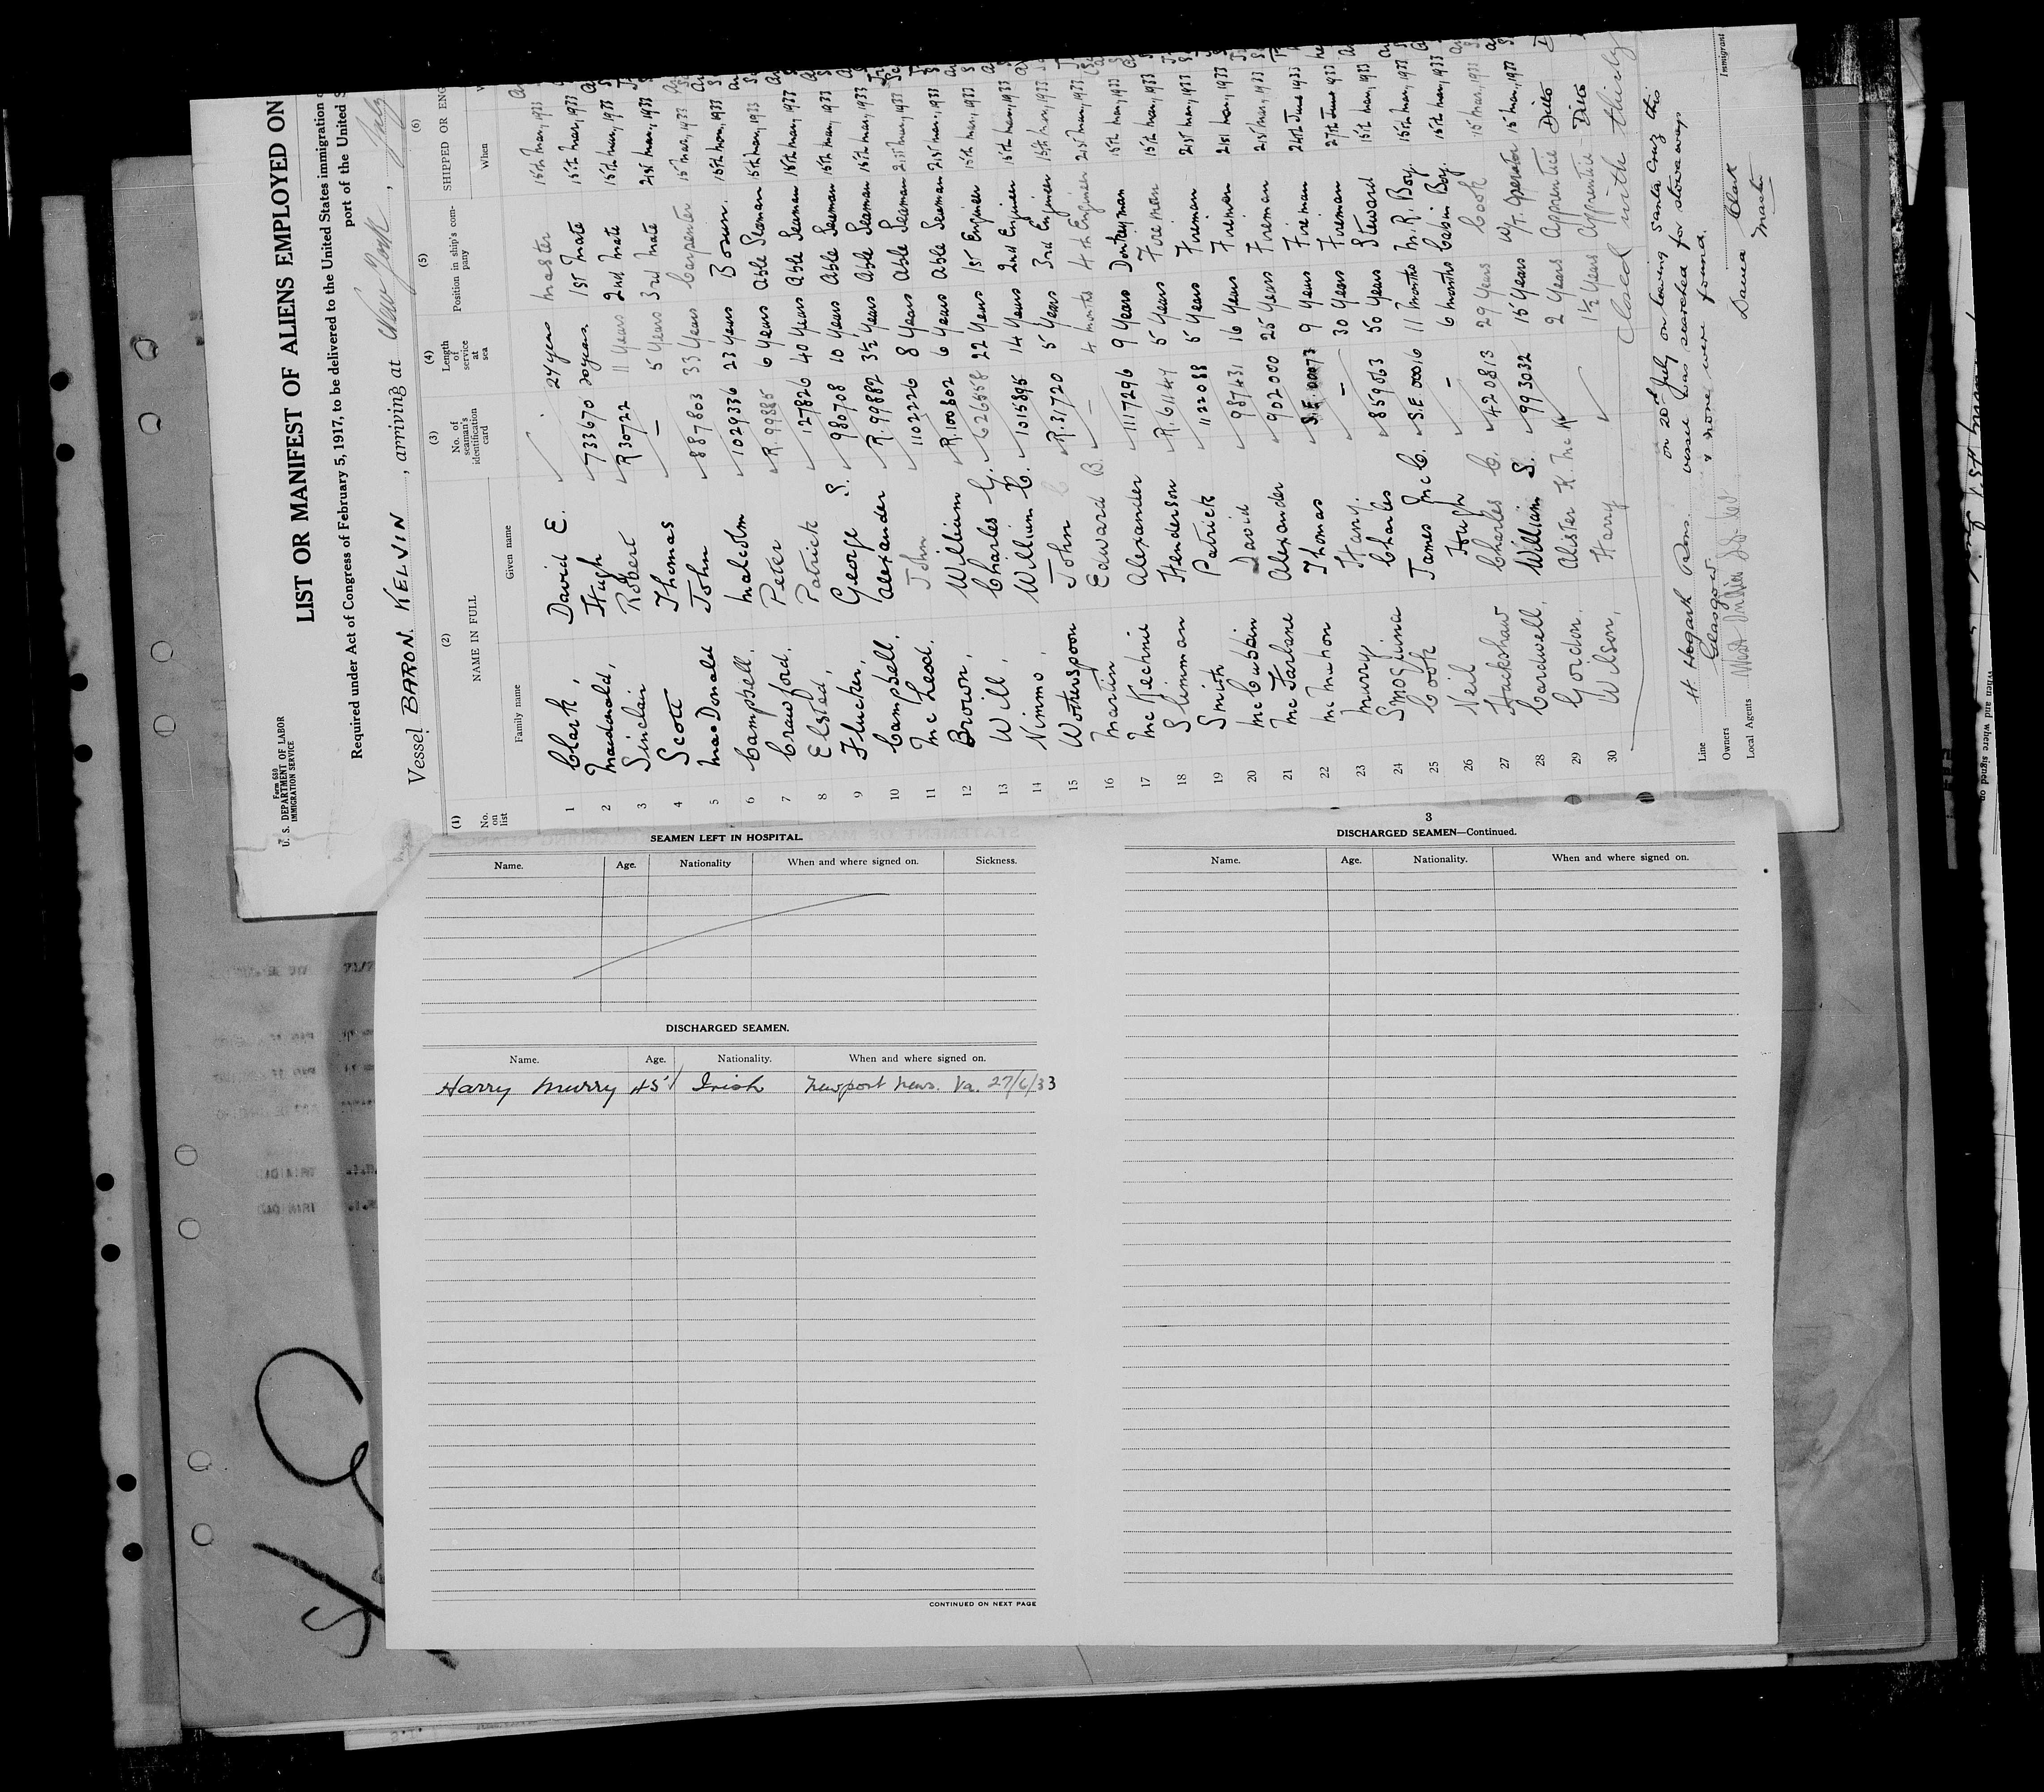 Form 630
U. S. DEPARTMENT OF LABOR
IMMIGRATION SERVICE
LIST OR MANIFEST OF ALIENS EMPLOYED ON
Required under Act of Congress of February 5, 1917, to be delivered to the United States immigration
port of the United S
Vessel BARON KELVIN, arriving at New York, July
(1) (2) (3) (4) (5) (6)
No. on list NAME IN FULL No. of seaman's identification card Length of service at sea Position in ship's company SHIPPED OR ENG
Family name Given name When
1 Clark, David E. 24 years Master 15th Mar, 1933
2 Macdonald, Hugh 733670 20 years 1st Mate 15th Mar, 1933
3 Sinclair Robert R 30722 11 Years 2nd Mate 15th Mar, 1933
4 Scott Thomas — 5 Years 3rd Mate 21st Mar, 1933
5 MacDonald John 887803 33 Years Carpenter 15 Mar, 1933
6 Campbell, Malcolm 1029336 23 Years Bosun. 15th Mar, 1933
7 Crawford, Peter R. 99885 6 Years Able Seaman 15th Mar, 1933
8 Elsted, Patrick 127826 40 Years Able Seaman 15th Mar, 1933
9 Flucker, George S. 980708 10 Years Able Seaman 15th Mar, 1933
10 Campbell, Alexander R. 99882 3½ Years Able Seaman 15th Mar, 1933
11 McLeod. John 1102226 8 Years Able Seaman 21st Mar, 1933
12 Brown, William R. 100802 6 Years Able Seaman 21st Mar, 1933
13 Will, Charles G. 626558 22 Years 1st Engineer 15th Mar, 1933
14 Nimmo, William C. 1015895 14 Years 2nd Engineer 15th Mar, 1933
15 Wotherspoon John R. 31720 5 Years 3rd Engineer 15th Mar, 1933
16 Martin Edward B. — 4 months 4th Engineer 21st Mar, 1933
17 McKechnie Alexander 1117296 9 Years Donkeyman 15th Mar, 1933
18 Slimman Henderson R. 61141 5 Years Fireman 15th Mar, 1933
19 Smith Patrick 1122088 5 Years Fireman 21st Mar, 1933
20 McCubbin David 987431 16 Years Fireman 21st Mar, 1933
21 McFarlane Alexander 902000 25 Years Fireman 21st Mar, 1933
22 McMahon Thomas S.E. 00073 9 Years Fireman 24th June 1933
23 Murry Harry — 30 Years Fireman 27th June 1933
24 Charles 859063 50 Years Steward 15th Mar, 1933
25 Cook James McC. S.E. 00016 11 months M.R. Boy. 15th Mar, 1933
26 Neil Hough — 6 months Cabin Boy. 15th Mar, 1933
27 Hackshaw Charles C. 420813 29 Years Cook 15 Mar, 1933
28 Cardwell, William S. 993032 15 Years W/T. Operator 15 Mar, 1933
29 Gordon. Alister K. McK 2 Years Apprentice Ditto
30 Wilson, Harry 1½ Years Apprentice Ditto
Closed with thirty
on 20th July on leaving Santa Cruz this
vessel was searched for stowaways
& none were found.
Line H. Hogarth & Sons.
Owners Glasgow.
Local Agents
Immigrant
Clark
Master
SEAMEN LEFT IN HOSPITAL.
Name. Age. Nationality When and where signed on. Sickness.
DISCHARGED SEAMEN.
Name. Age. Nationality. When and where signed on.
Harry Murry 45 Irish Newport News. Va. 27/6/33
CONTINUED ON NEXT PAGE
3
DISCHARGED SEAMEN—Continued.
Name. Age. Nationality. When and where signed on.
When and where signed on